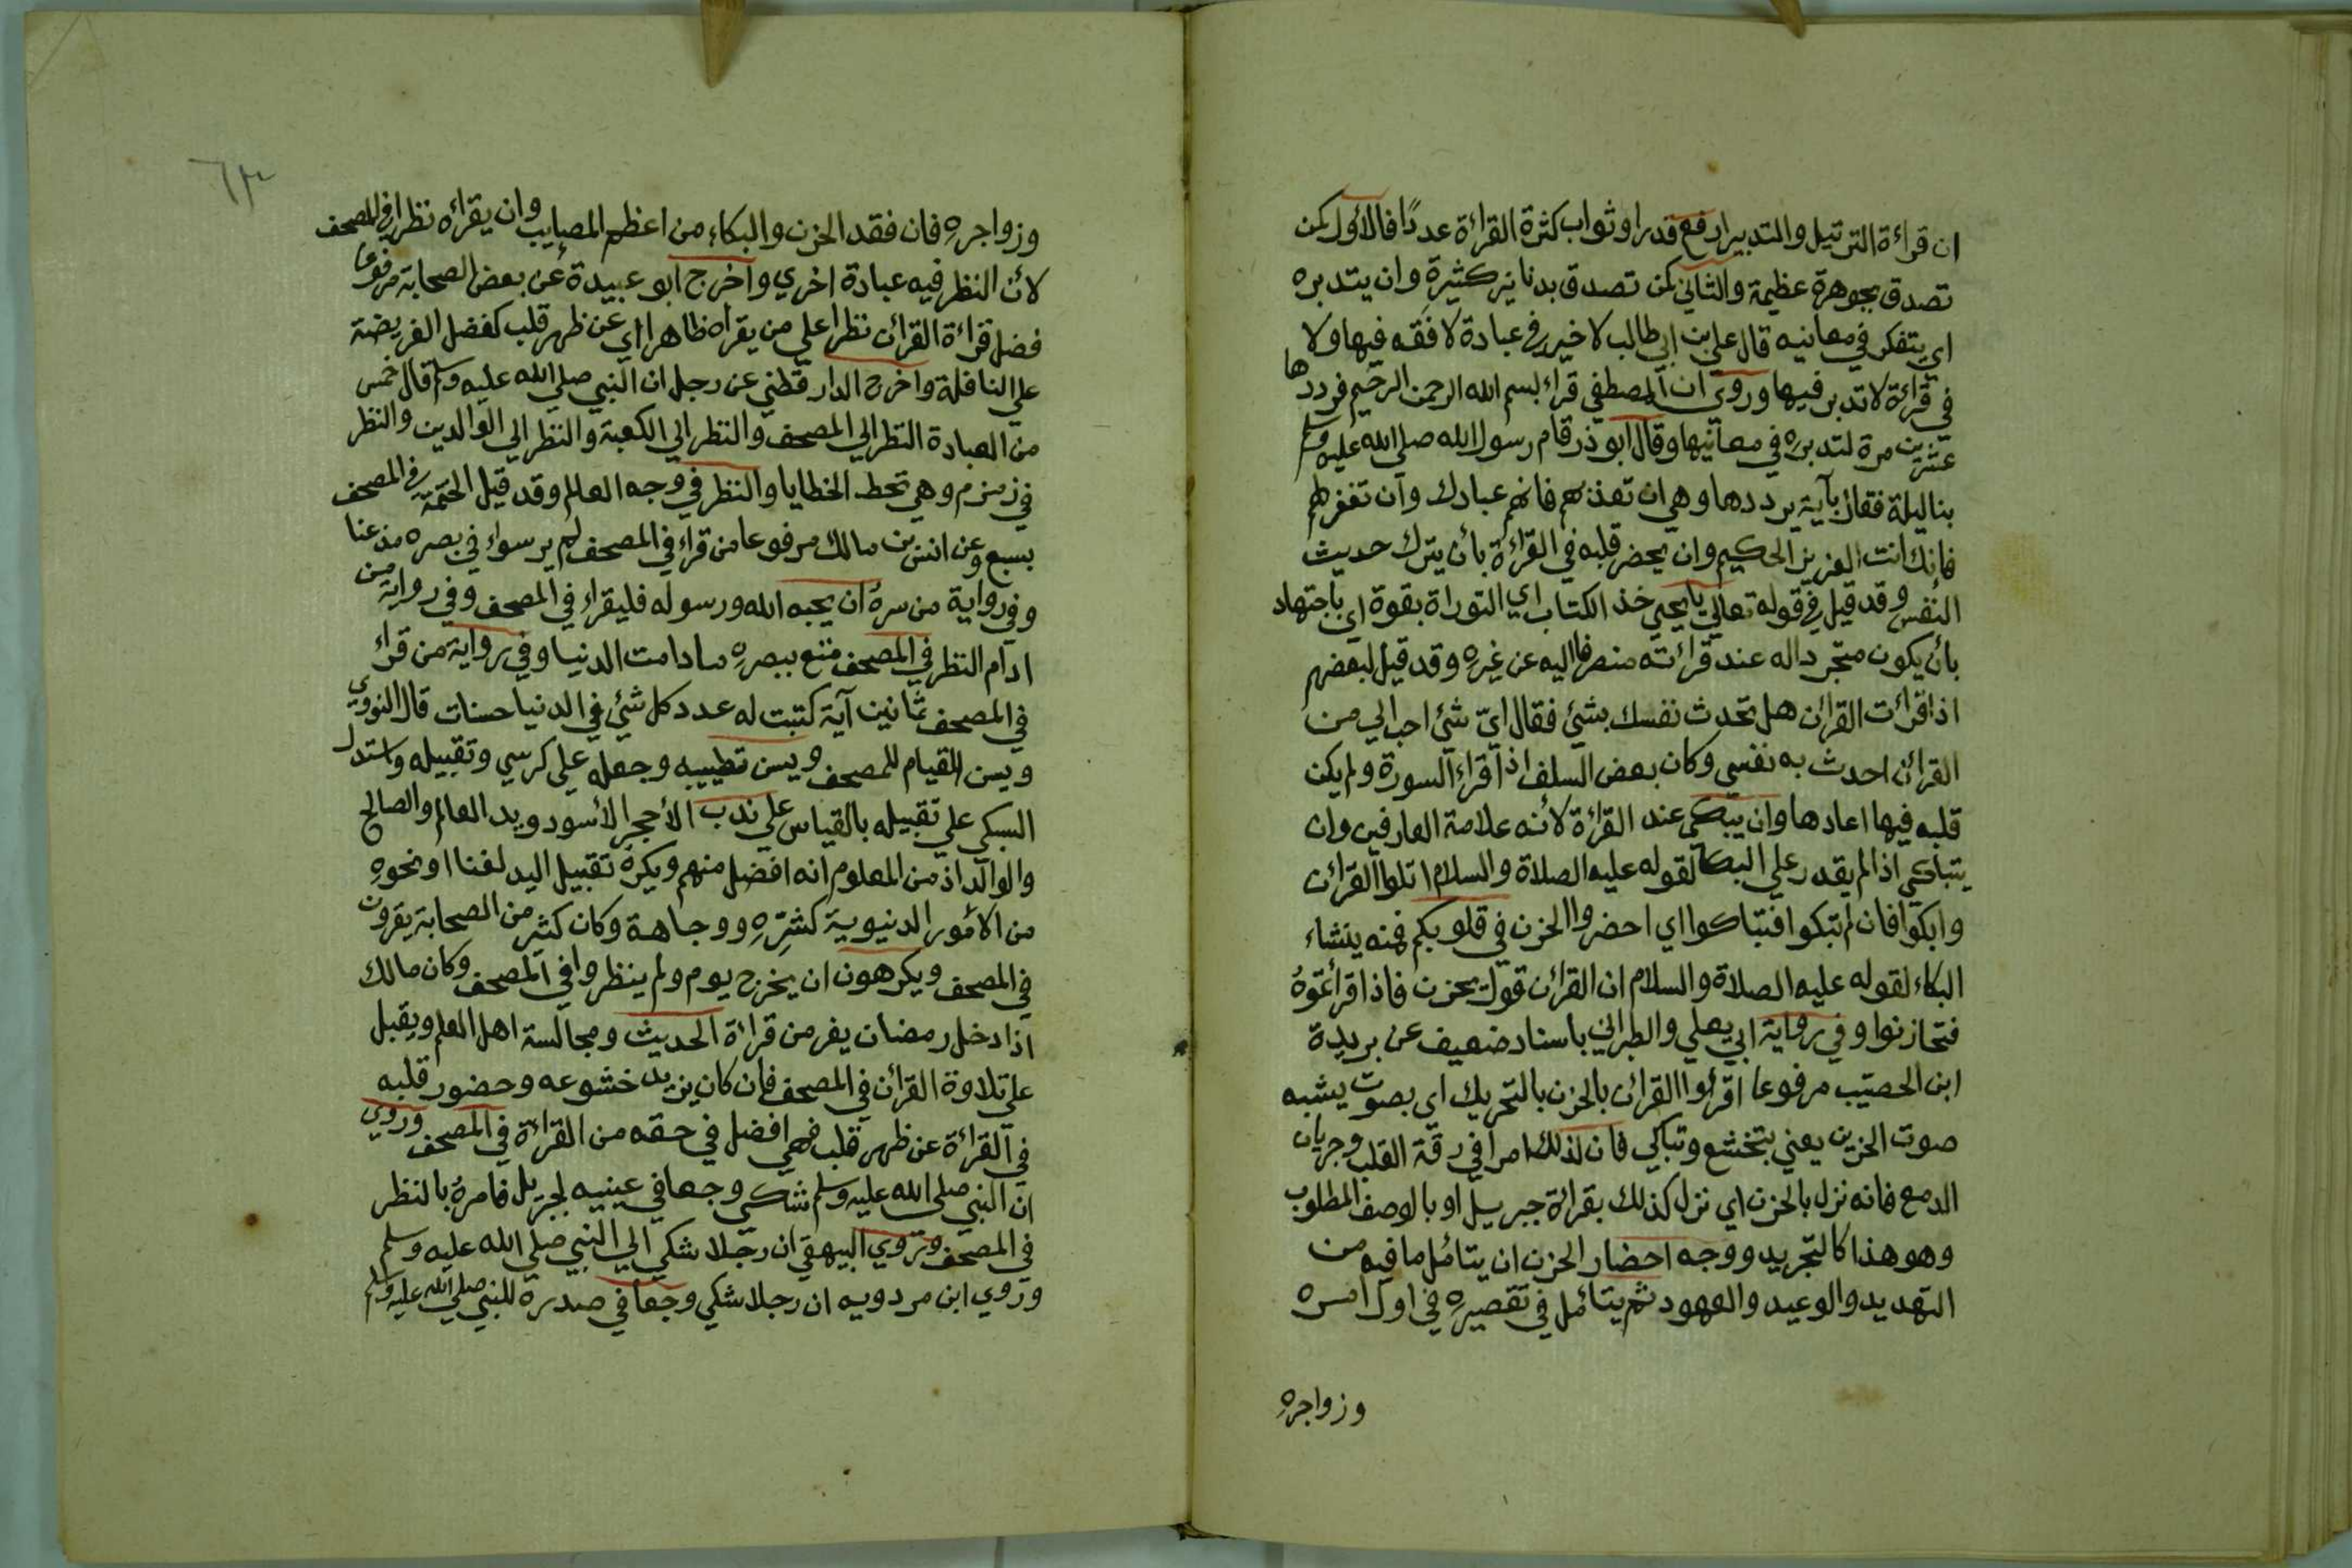 ان قراءة الترتيل والتدبير ارفع قدرا وثواب كثرة القراءة عددًا فالأول كمن
تصدق بجوهرة عظيمة والثاني كمن تصدق بدنانير كثيرة وان يتدبره
اي يتفكر في معانيه قال علي بن ابي طالب لا خير في عبادة لا فقه فيها ولا
في قراءة لا تدبر فيها وروي ان المصطفي قراء بسم الله الرحمن الرحيم فرددها
عشرين مرة لتدبره في معانيها وقال ابو ذر قام رسول الله صلي الله عليه وسلم
بنا ليلة فقام بآية يرددها وهي ان تعذبهم فانهم عبادك وان تغفر لهم
فانك انت العزيز الحكيم وان يحضر قلبه في القراءة بأن يترك حديث
النفس وقد قيل في قوله تعالي يا يحيي خذ الكتاب اي التوراة بقوة اي باجتهاد
بأن يكون متجردا له عند قرائته منصرفا اليه عن غيره وقد قيل لبعضهم
اذا قرائت القرائن هل تحدث نفسك بشئ فقال ايّ شئ احب الي من
القرائن احدث به نفسي وكان بعض السلف اذا قراء السورة ولم يكن
قلبه فيها اعادها وان يبكي عند القراءة لأنه علامة العارفين وان
يتباكي اذا لم يقدر علي البكا لقوله عليه الصلاة والسلام اتلوا القرائن
وابكوا فان لم تبكوا فتباكوا اي احضروا الحزن في قلوبكم فمنه ينشاء
البكاء لقوله عليه الصلاة والسلام ان القرائن قول بحزن فاذا قرأتموهُ
فتحازنوا وفي رواية ابي يعلي والطبراني باسناد ضعيف عن بريدة
ابن الحصيب مرفوعا اقرأوا القرائن بالحزن بالتحريك اي بصوت يشبه
صوت الحزين يعني بتخشع وتباكي فان لذلك امرا في رقة القلب وجريان
الدمع فانه نزل بالحزن اي نزل كذلك بقراءة جبريل او بالوصف المطلوب
وهو هذا كالتجريد ووجه احضار الحزن ان يتأمل ما فيه من
التهديد والوعيد والعهود ثم يتأمل في تقصيره في اول امره
وزواجره
٦٣
وزواجره فان فقد الحزن والبكاء من اعظم المصايب وان يقراه نظرا في المصحف
لأن النظر فيه عبادة اخري واخرج ابو عبيدة عن بعض الصحابة مرفوعا
فضل قراءة القرائن نظرا علي من يقراه ظاهرا اي عن ظهر قلب كفضل الفريضة
علي النافلة واخرج الدارقطني عن رجل ان النبي صلي الله عليه وسلم قال خمس
من العبادة النظر الي المصحف والنظر الي الكعبة والنظر الي الوالدين والنظر
في زمزم وهي تحط الخطايا والنظر في وجه العالم وقد قيل الختمة في المصحف
بسبع وعن انس بن مالك مرفوعا من قراء في المصحف لم ير سواء في بصره
وفي رواية من سره ان يحبه الله ورسوله فليقراء في المصحف وفي رواية من
ادام النظر في المصحف متع ببصره مادامت الدنيا وفي رواية من قراء
في المصحف ثمانين آية كتبت له عدد كل شئ في الدنيا حسنات قال النووي
ويسن القيام للمصحف ويسن تطييبه وجعله علي كرسي وتقبيله واستدل
السبكي علي تقبيله بالقياس علي ندب الأحجر الأسود ويد العالم والصالح
والوالد اذ من المعلوم انه افضل منهم ويكره تقبيل اليد لغنا او نحوه
من الامور الدنيوية كشره ووجاهة وكان كثير من الصحابة يقرون
في المصحف ويكرهون ان يخرج يوم ولم ينظروا في المصحف وكان مالك
اذا دخل رمضان يفر من قراءة الحديث ومجالسة اهل العلم ويقبل
علي تلاوة القرائن في المصحف فان كان يزيد خشوعه وحضور قلبه
في القراءة عن ظهر قلب فهي افضل في حقه من القراءة في المصحف وروي
ان النبي صلي الله عليه وسلم شكي وجعا في عينيه لجبريل فامره بالنظر
في المصحف وروي البيهقي ان رجلا شكي الي النبي صلي الله عليه وسلم
وروي ابن مردويه ان رجلا شكي وجعا في صدره للنبي صلي الله عليه وسلم